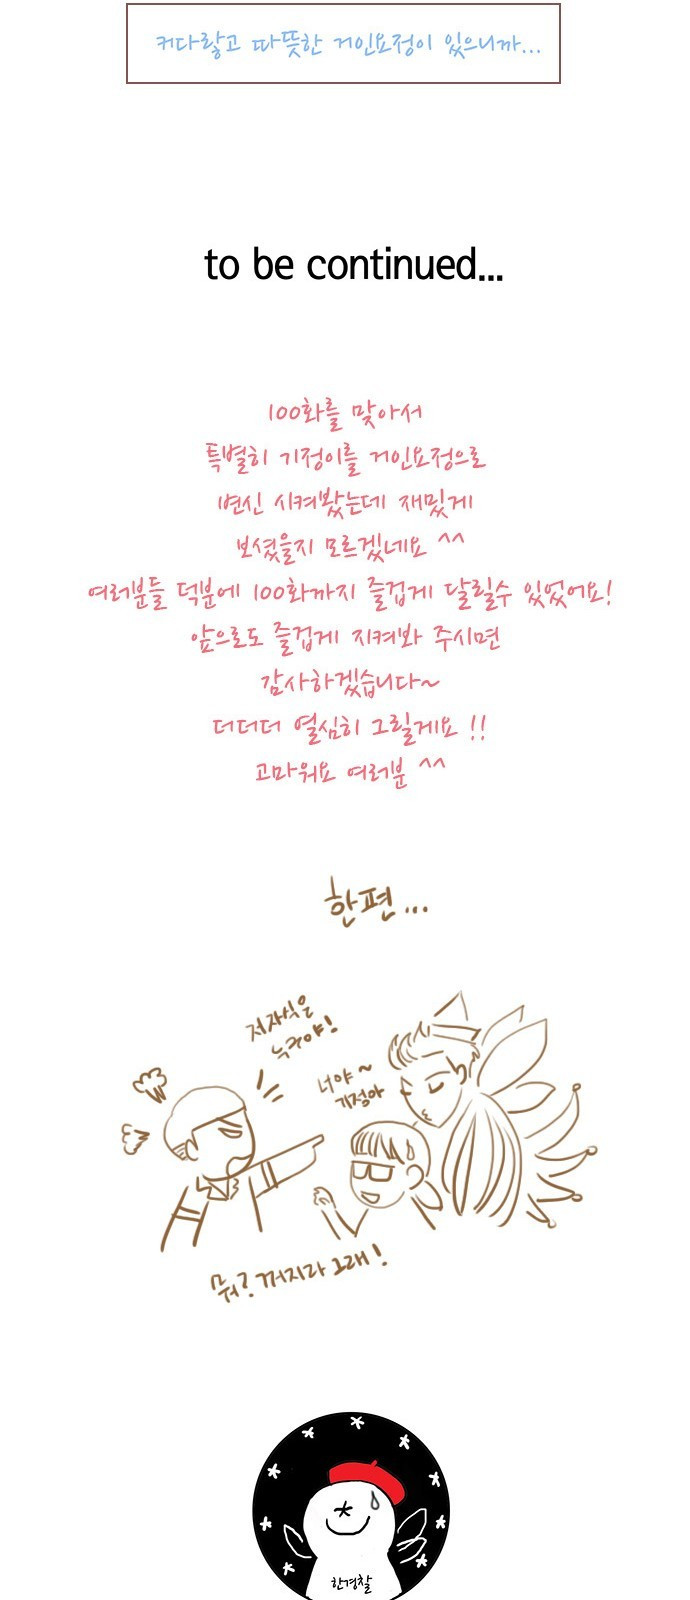 커다랗고 따뜻한 거인요정이 있으니까...
to be continued...
100화를 맞아서
특별히 기정이를 거인요정으로
변신 시켜봤는데 재밌게
보셨을지 모르겠네요 ^^
여러분들 덕분에 100화까지 즐겁게 달릴수 있었어요!
앞으로도 즐겁게 지켜봐 주시면
감사하겠습니다~
더더더 열심히 그릴게요 !!
고마워요 여러분 ^^
한편...
저자식은
누구야!
너야~
기정아
뭐? 꺼지라 그래!
한경찰